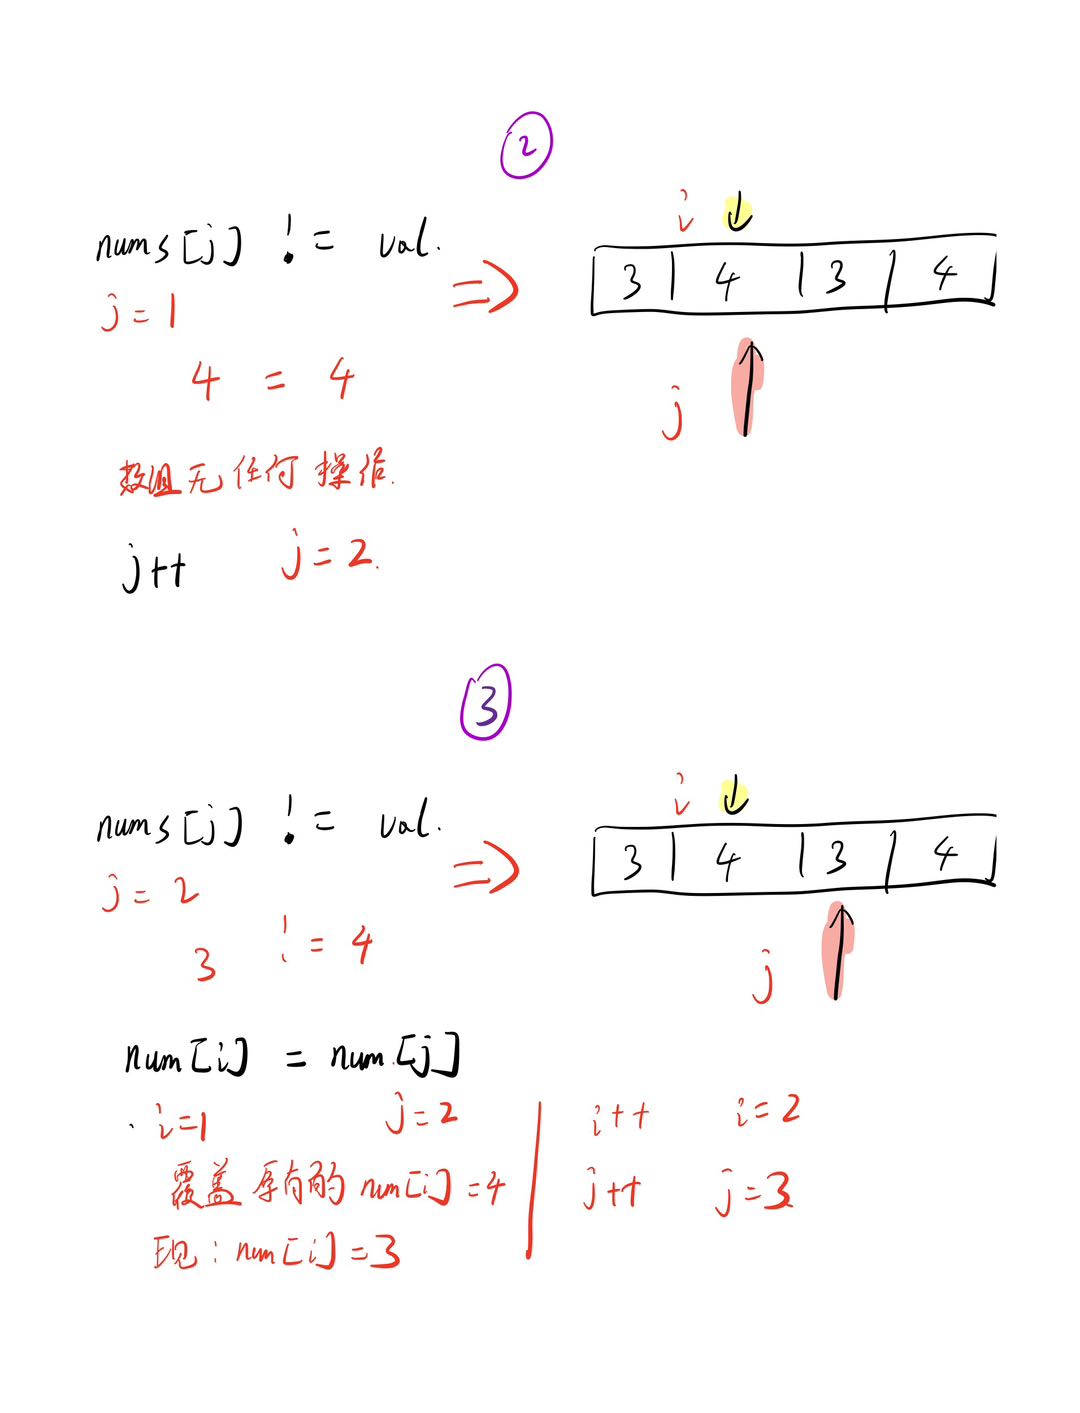 ②
nums[j] != val.
j = 1
4 = 4
数组无任何操作.
j++ j=2.
i
3 4 3 4
j
③
nums[j] != val.
j = 2
3 != 4
i
3 4 3 4
j
num[i] = num[j]
i=1 j=2
覆盖原有的 num[i]=4
现: num[i]=3
i++ i=2
j++ j=3